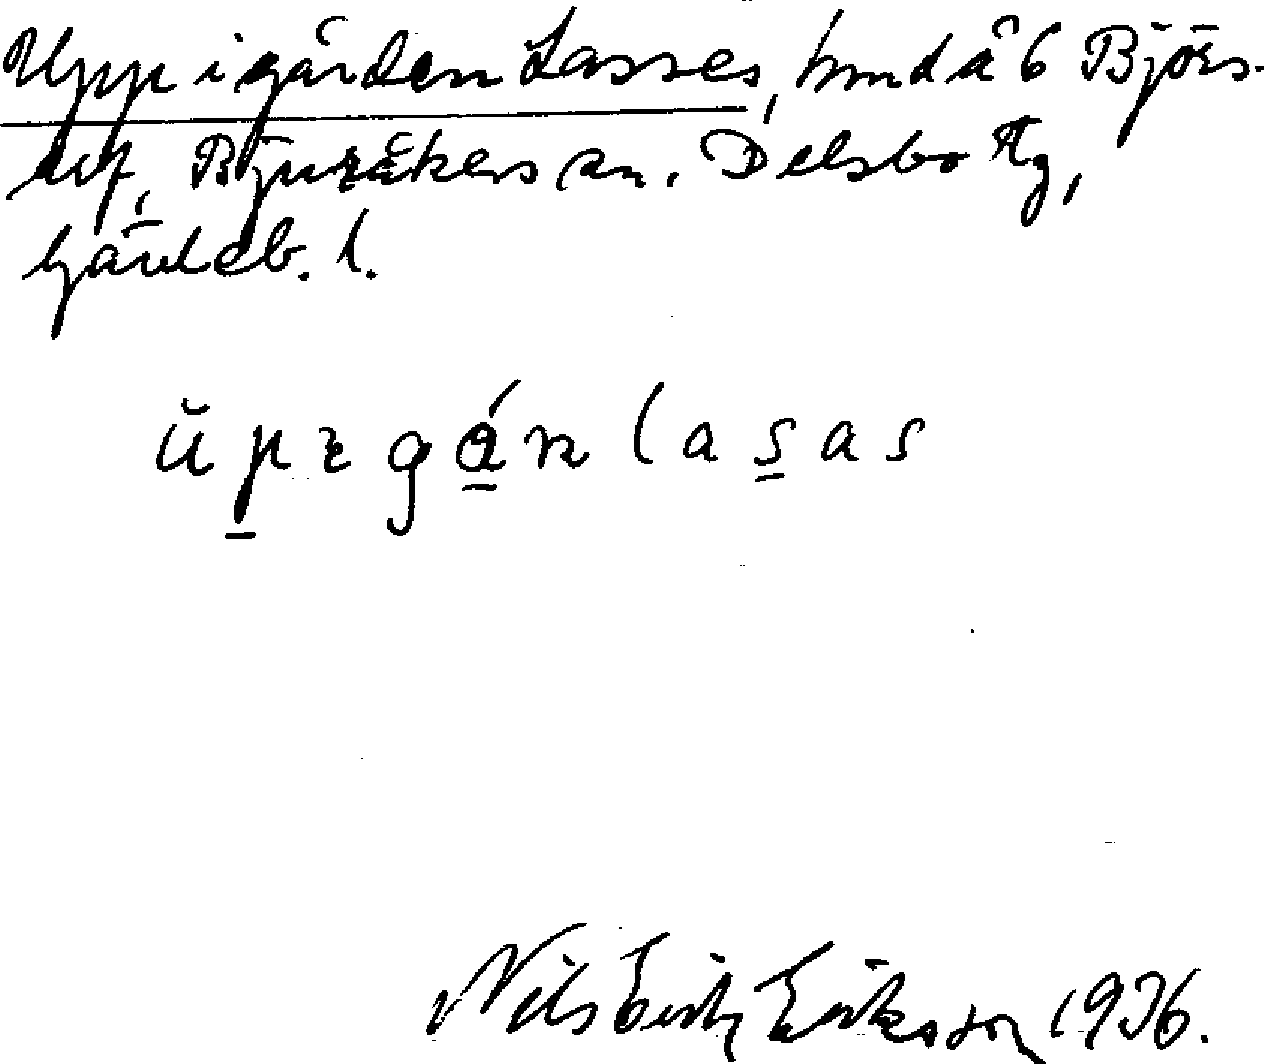 Uppigården Lasses, hmd å 6 Björs-
arf, Bjuråkers sn. Delsbo tg,
Gävleb. l.
ŭp̲ɪgá̲n las̲as
Nils Erik Eriksson 1936.